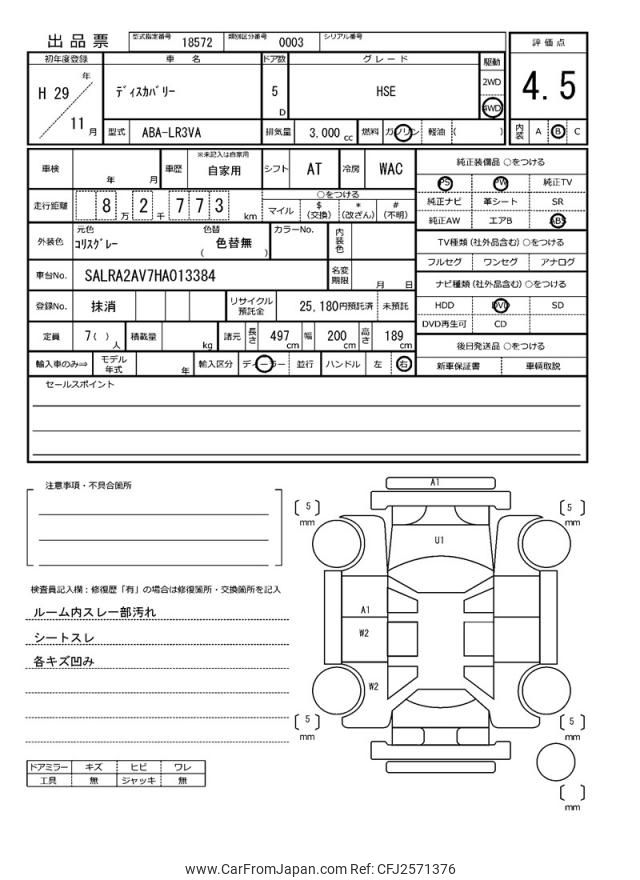 出品票 型式指定番号 18572 類別区分番号 0003 シリアル番号
評価点
4.5
内装 A B C
初年度登録 車名 ドア数 グレード 駆動
H 29 年
11 月
ディスカバリー 5 D HSE 2WD
4WD
型式 ABA-LR3VA 排気量 3.000 cc 燃料 ガソリン 軽油 ( )
車検 年 月 車歴 ※未記入は自家用 自家用 シフト AT 冷房 WAC
走行距離 8 万 2 千 7 7 3 km ○をつける
マイル $ (交換) * (改ざん) # (不明)
外装色 元色 コリスグレー 色替 ( 色替無 ) カラーNo. 内装色
車台No. SALRA2AV7HA013384 名変期限 月 日
登録No. 抹消 リサイクル預託金 25,180円預託済 未預託
定員 7( ) 人 積載量 kg 諸元 長さ 497 cm 幅 200 cm 高さ 189 cm
輸入車のみ⇒ モデル年式 年 輸入区分 ディーラー 並行 ハンドル 左 右
純正装備品 ○をつける
PS PW 純正TV
純正ナビ 革シート SR
純正AW エアB ABS
TV種類 (社外品含む) ○をつける
フルセグ ワンセグ アナログ
ナビ種類 (社外品含む) ○をつける
HDD DVD SD
DVD再生可 CD
後日発送品 ○をつける
新車保証書 車輌取説
セールスポイント
注意事項・不具合箇所
検査員記入欄：修復歴「有」の場合は修復箇所・交換箇所を記入
ルーム内スレ一部汚れ
シートスレ
各キズ凹み
ドアミラー キズ ヒビ ワレ
工具 無 ジャッキ 無
A1
[ 5 ] mm
[ 5 ] mm
U1
A1
W2
W2
[ 5 ] mm
[ 5 ] mm
[ ] mm
www.CarFromJapan.com Ref: CFJ2571376